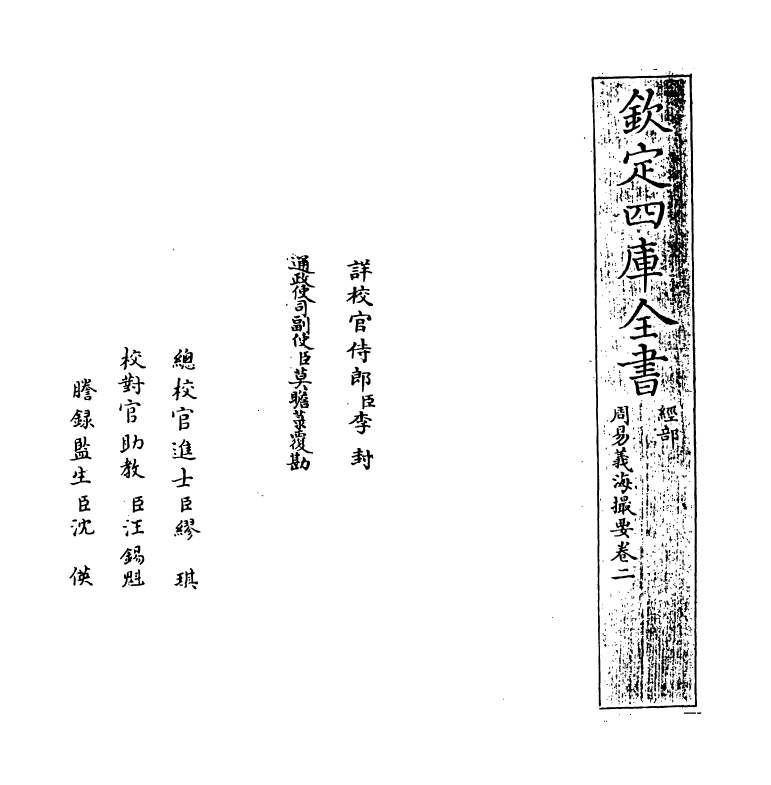 欽定四庫全書
經部
周易義海撮要卷二
詳校官侍郎臣李封
通政使司副使臣莫瞻菉覆勘
總校官進士臣繆琪
校對官助教臣汪錫魁
謄録監生臣沈偀